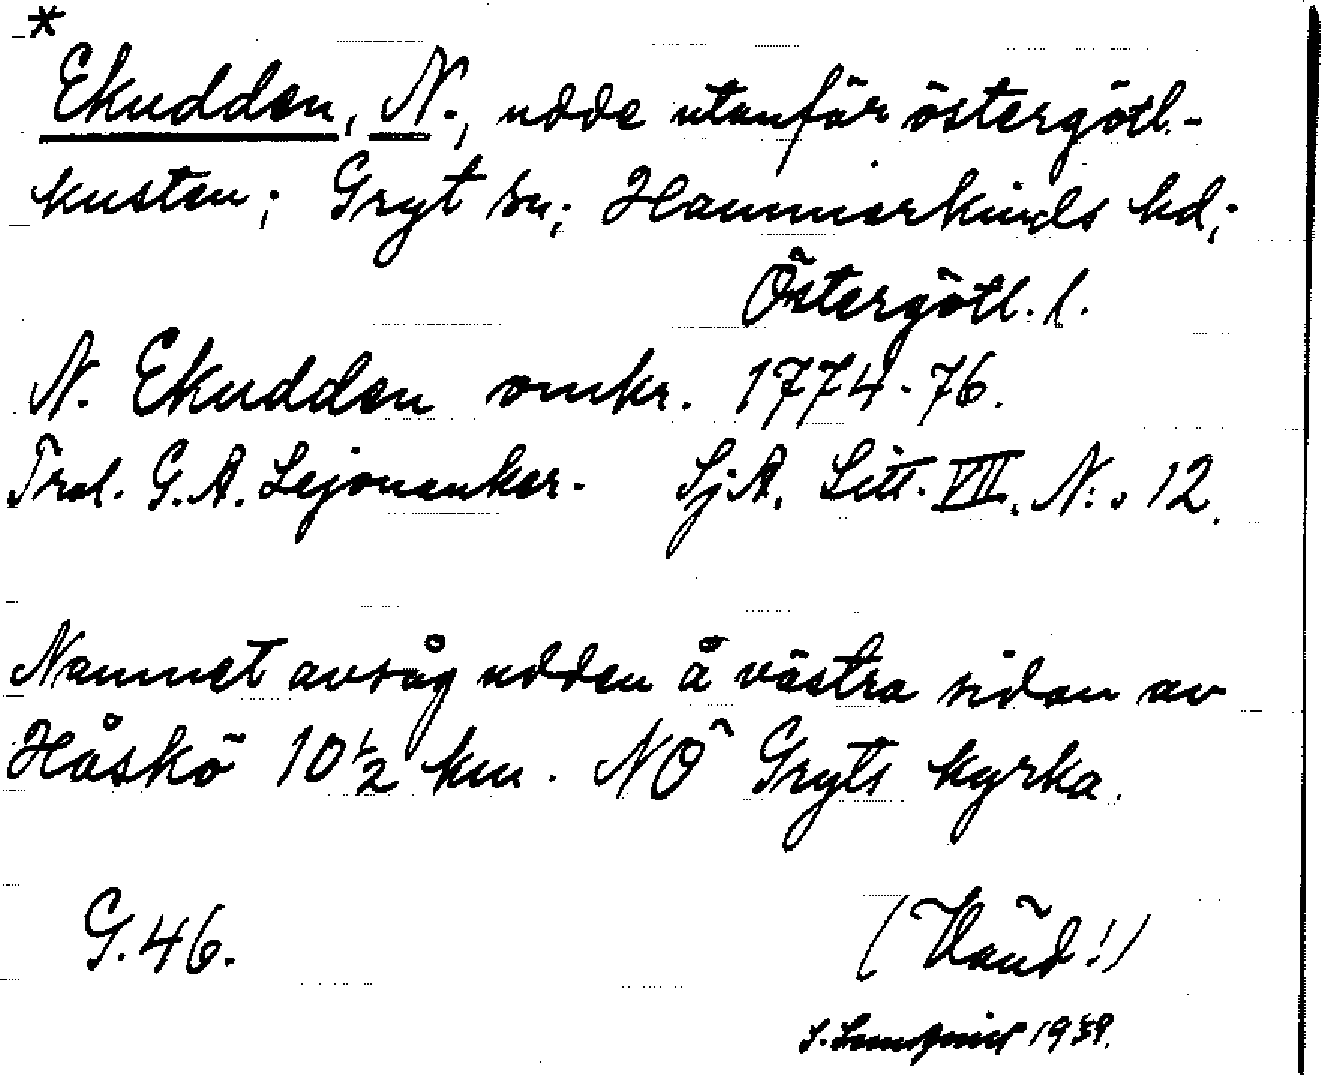 *
Ekudden, N., udde utanför östergötl.-
kusten; Gryt sn; Hammarkinds hd;
Östergötl. l.
N. Ekudden omkr. 1774-76.
G. A. Lejonanker. SjA. Litt. VII. N:o 12.
Namnet avsåg udden å västra sidan av
Håskö 10 ½ km. NÖ Gryts kyrka.
G. 46. (Vänd!)
1939.